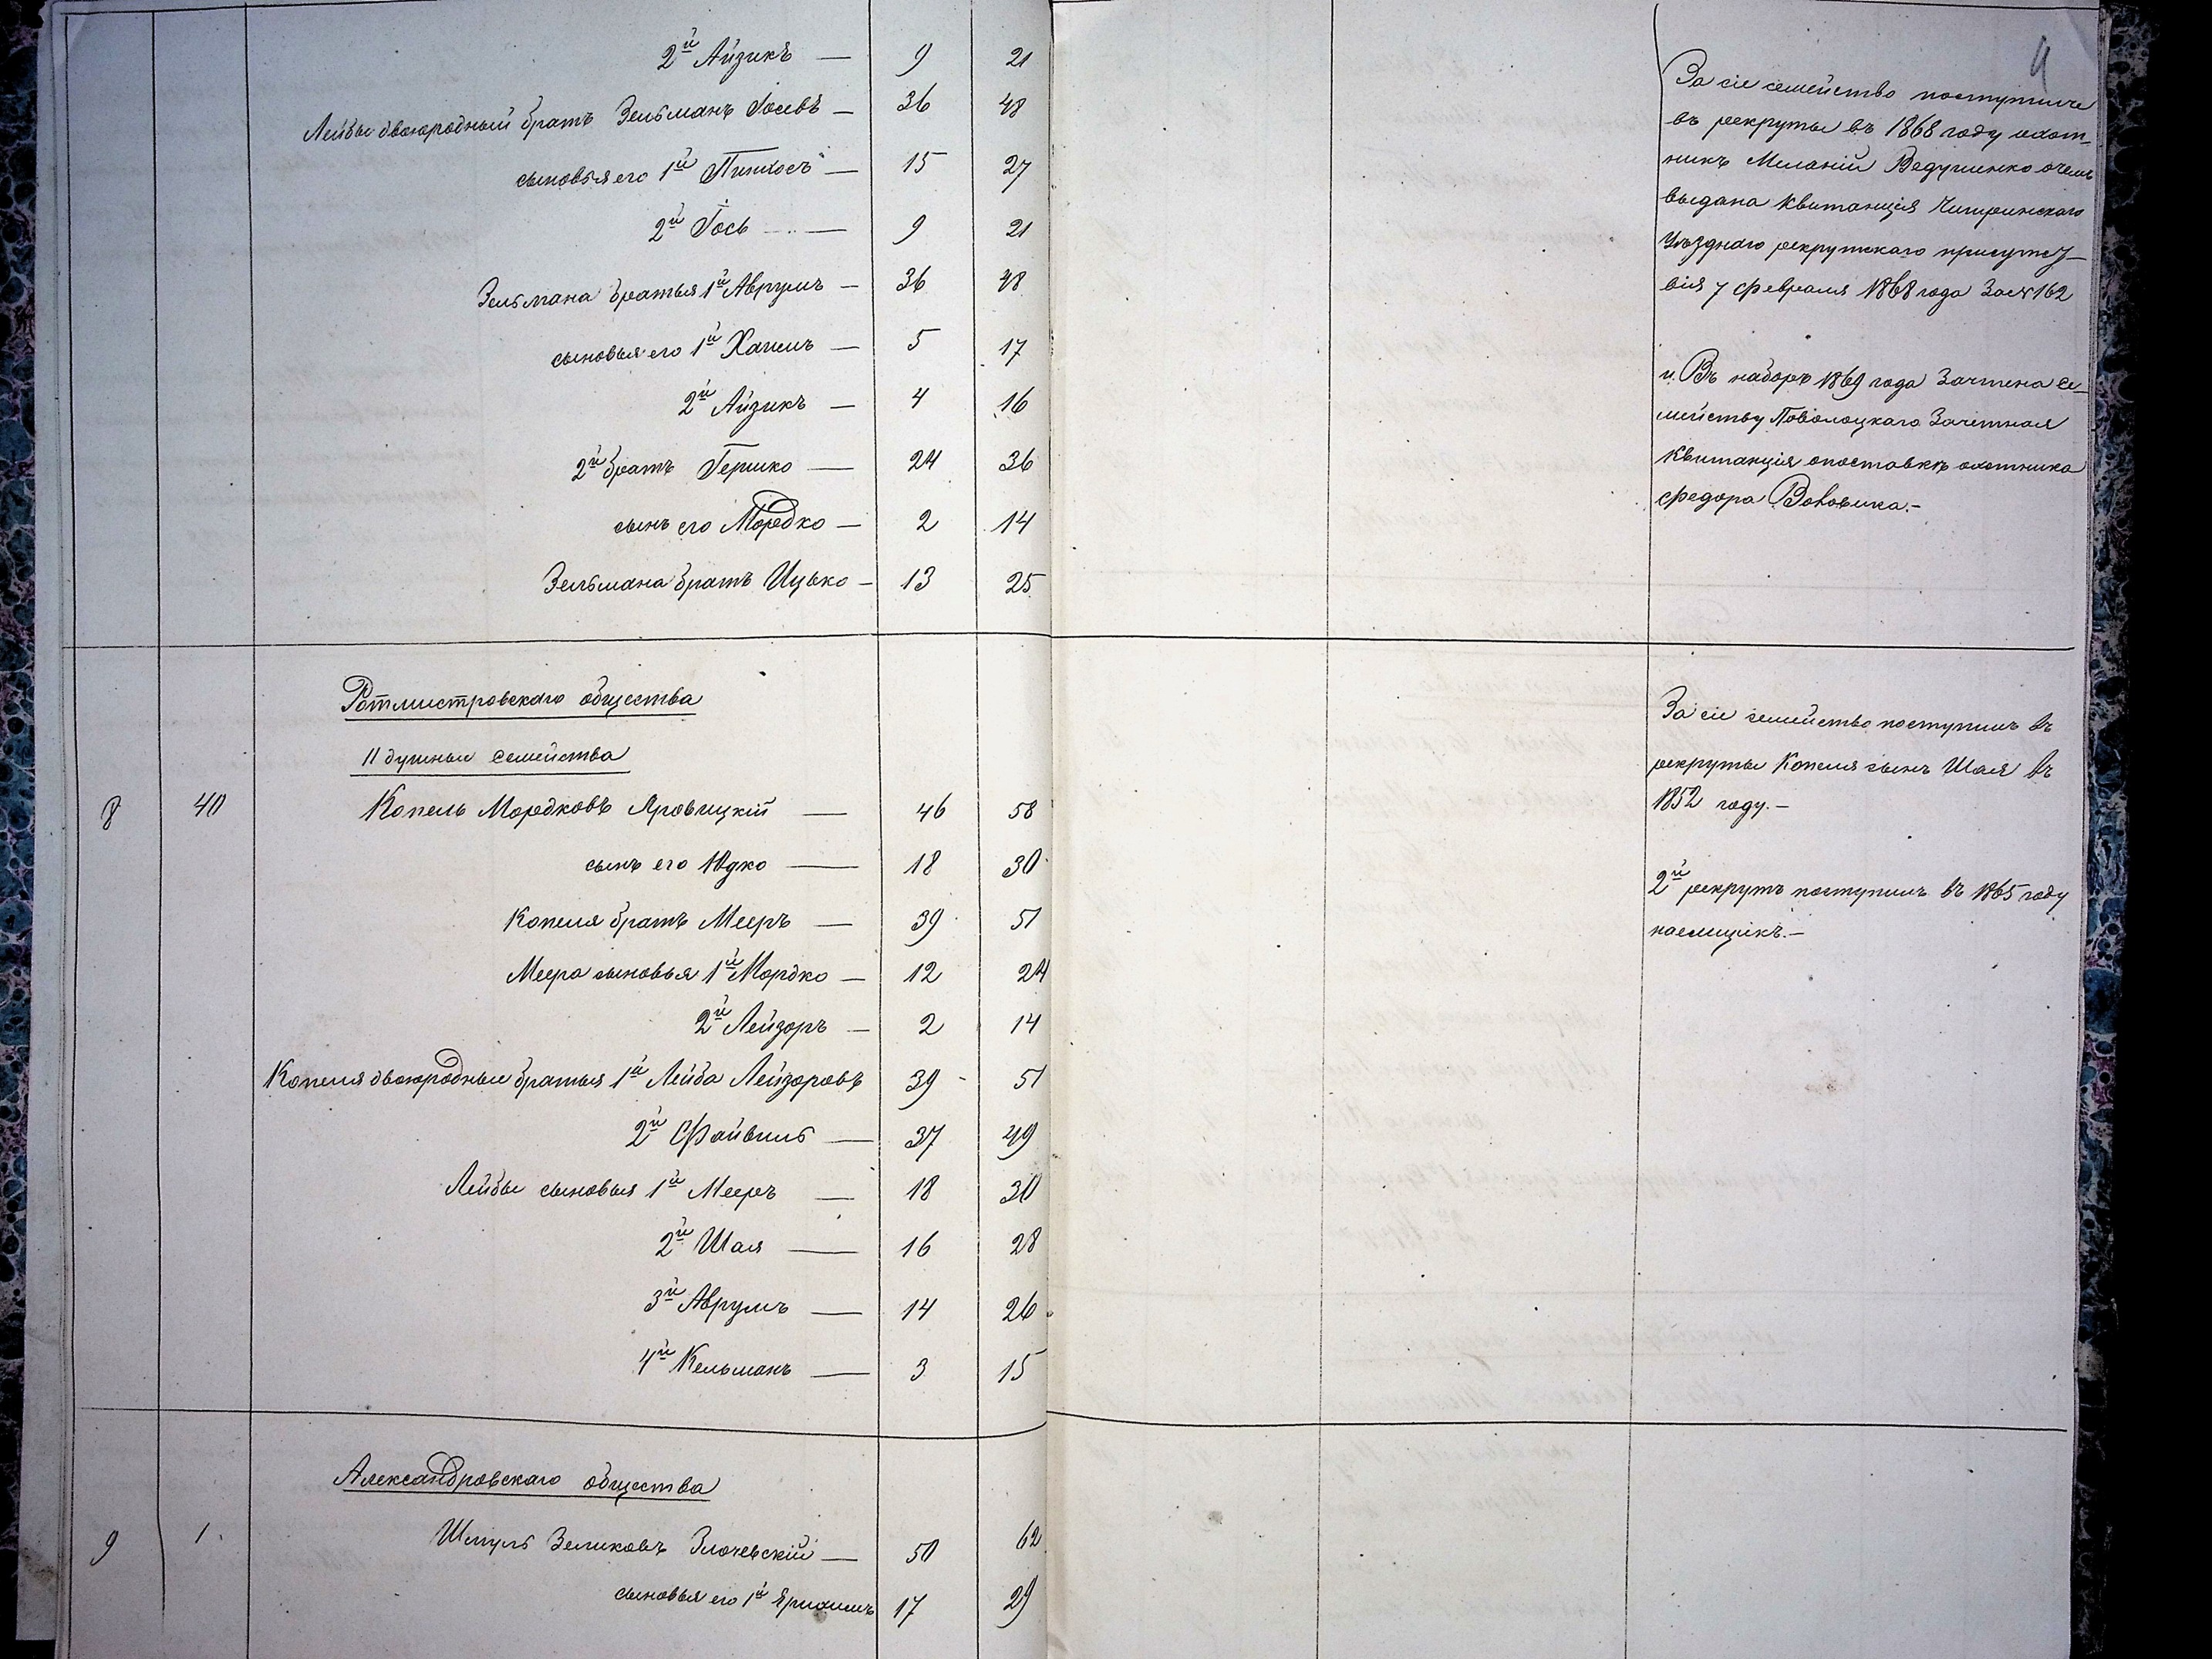 2й Айзикъ — 9 21
Лейбы двоюродный братъ Зельманъ Іосевъ — 36 48
сыновья его 1й Пинхосъ — 15 27
2й Іось — 9 21
Зельмана братья 1й Аврумъ — 36 48
сыновья его 1й Хаимъ — 5 17
2й Айзикъ — 4 16
2й братъ Гершко — 24 36
сынъ его Мордко — 2 14
Зельмана братъ Ицько — 13 25
4
За сіе семейство поступилъ
въ рекруты въ 1868 году охот-
никъ Меланій Ведушенко о чемъ
выдана квитанція Чигринскаго
Уѣзднаго рекрутскаго присутст-
вія 7 февраля 1868 года за № 162
и Въ наборъ 1869 года Зачтена се-
мейству Поволоцкаго Зачетная
Квитанція о поставкѣ охотника
Федора
Ротмистровскаго общества
11 душныя семейства
8 40 Копель Мордковъ Яровицкій — 46 58
сынъ его Юдко — 18 30
Копеля братъ Мееръ — 39 51
Меера сыновья 1й Мордко — 12 24
2й Лейзоръ — 2 14
Копеля двоюродные братья 1й Лейба Лейзоровъ 39 51
2й Файвиль — 37 49
Лейбы сыновья 1й Мееръ — 18 30
2й Шая — 16 28
3й Аврумъ — 14 26
4й Кельманъ — 3 15
За сіе семейство поступилъ въ
рекруты Копеля сынъ Шая въ
1852 году.—
2й рекрутъ поступилъ въ 1865 году
наемщикъ.—
Александровскаго общества
9 1. Шмуль Зеликовъ Злочевскій — 50 62
сыновья его 1й 17 29